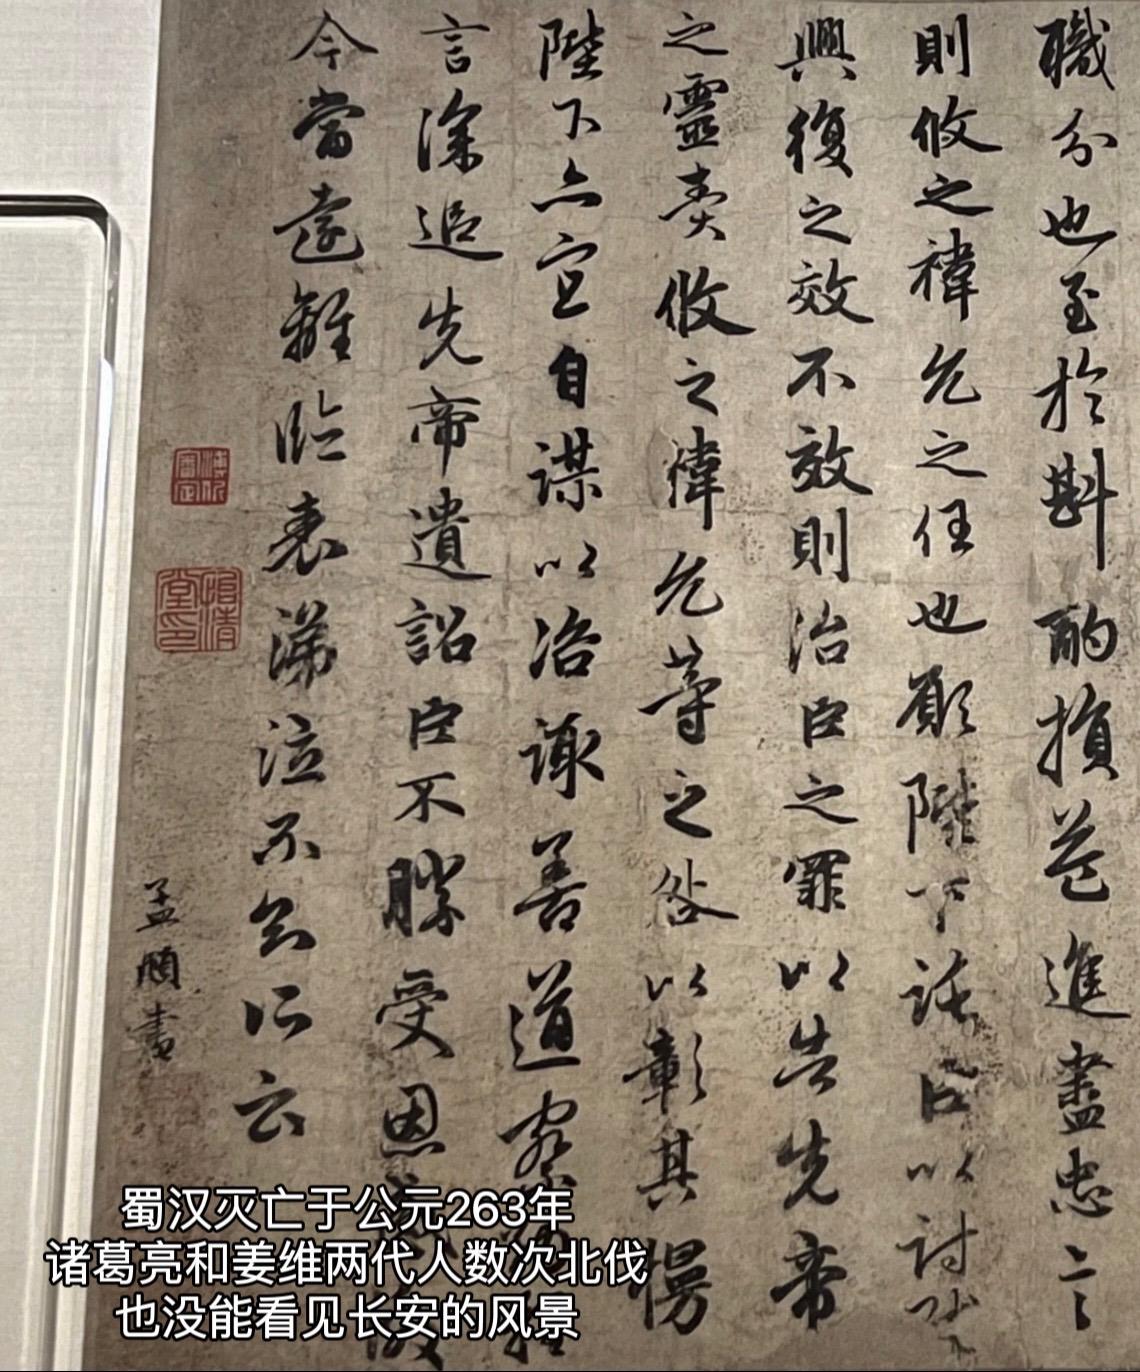 職分也至於斟酌損益進盡忠言
則攸之禕允之任也願陛下託臣以討
興復之效不效則治臣之罪以告先帝
之靈責攸之禕允等之咎以彰其慢
陛下亦宜自謀以咨諏善道察納雅
言深追先帝遺詔臣不勝受恩感激
今當遠離臨表涕泣不知所云
孟頫書
蜀汉灭亡于公元263年
诸葛亮和姜维两代人数次北伐
也没能看见长安的风景